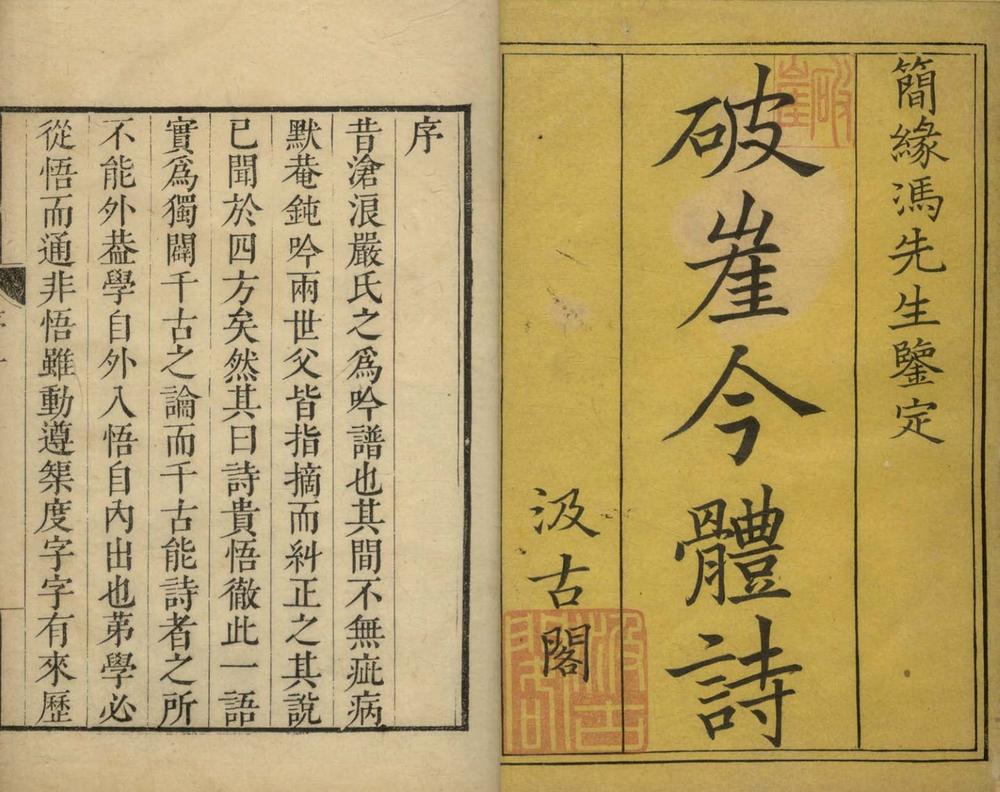 簡緣馮先生鑒定
破崖今體詩
汲古閣
序
昔滄浪嚴氏之爲吟譜也其間不無疵病
默菴鈍吟兩世父皆指摘而糾正之其說
已聞於四方矣然其曰詩貴悟徹此一語
實爲獨闢千古之論而千古能詩者之所
不能外葢學自外入悟自內出也苐學必
從悟而通非悟雖動遵榘度字字有來歷